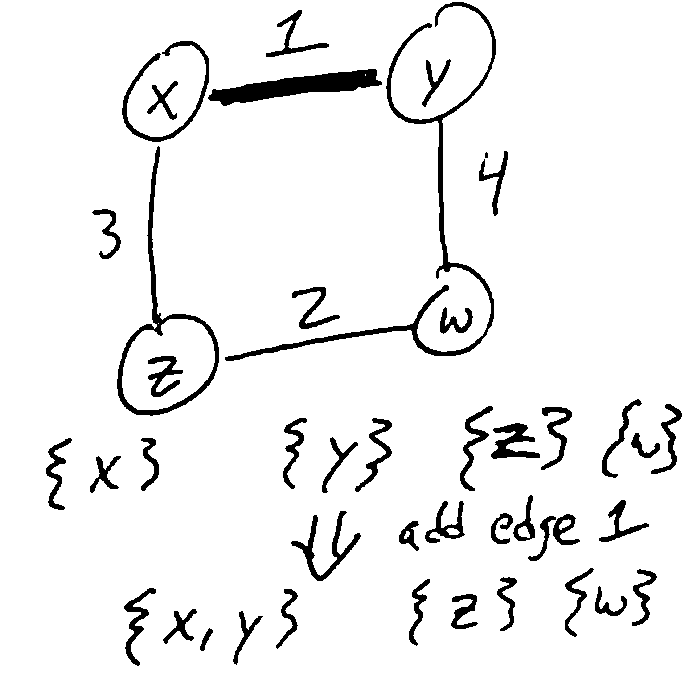 1
x y
3 4
2
z w
{x} {y} {z} {w}
add edge 1
{x, y} {z} {w}